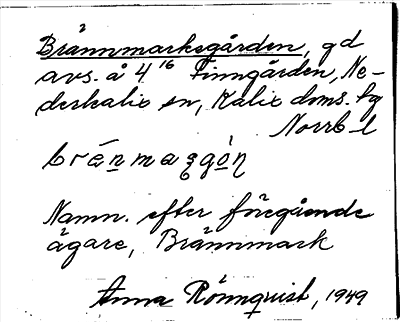 Brännmarksgården, gd
avs. å 4¹⁶ Finngården, Ne-
derkalix sn, Kalix doms. hg
Norrb. l
Namn. efter föregående
ägare, Brännmark
Anna Rönnquist, 1949